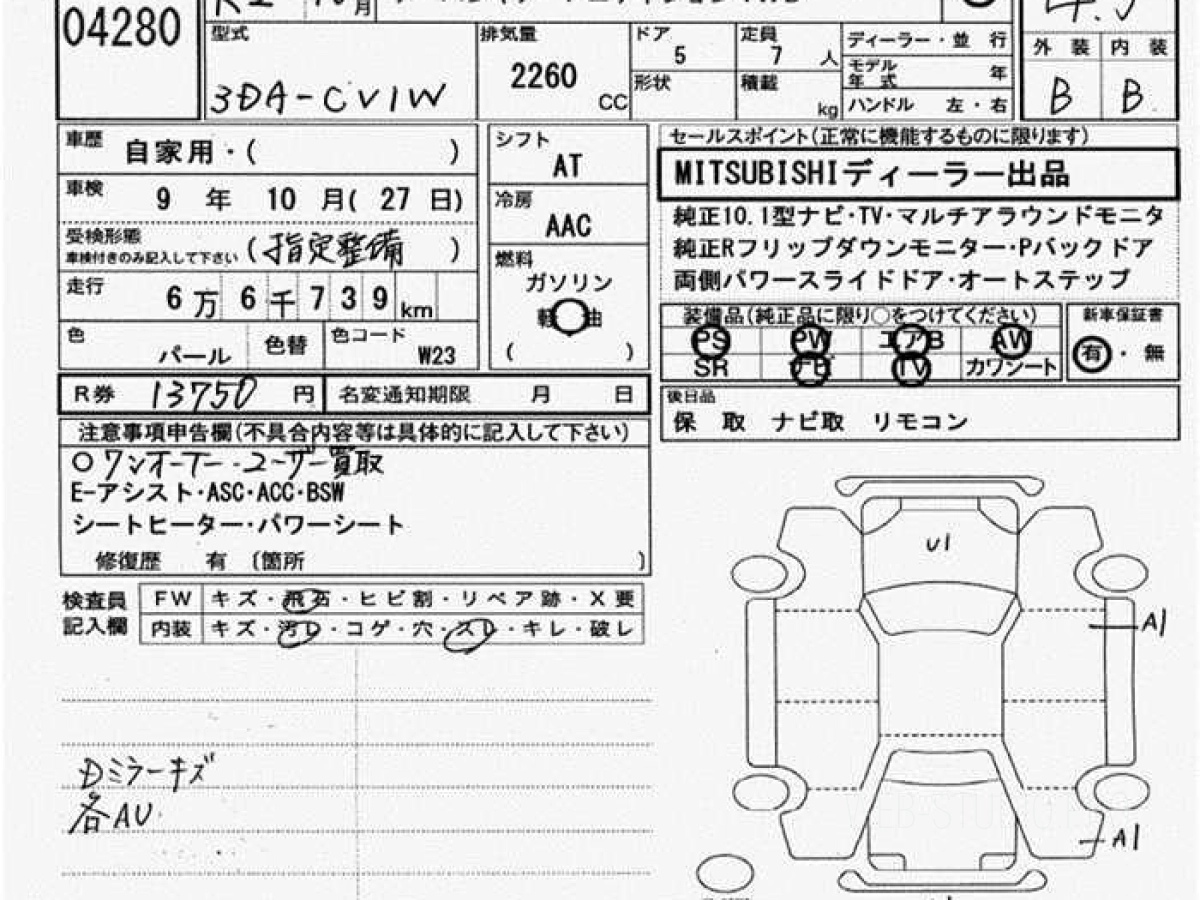 04280
型式
3DA-CV1W
排気量
2260
CC
ドア
5
定員
7 人
形状
積載
kg
ディーラー・並 行
モデル年 式 年
ハンドル 左・右
外 装 内 装
B B
車歴 自家用・( )
車検 9 年 10 月( 27 日)
受検形態
車検付きのみ記入して下さい (指定整備 )
走行 6万 6千 7 3 9 km
色 パール 色替 色コード W23
シフト
AT
冷房
AAC
燃料
ガソリン
軽 油
( )
セールスポイント(正常に機能するものに限ります)
MITSUBISHIディーラー出品
純正10.1型ナビ・TV・マルチアラウンドモニタ
純正Rフリップダウンモニター・Pバックドア
両側パワースライドドア・オートステップ
装備品(純正品に限り○をつけてください)
PS PW エアB AW
SR ナビ TV カワシート
新車保証書
有・無
R券 13750 円 名変通知期限 月 日
後日品
保 取 ナビ取 リモコン
注意事項申告欄(不具合内容等は具体的に記入して下さい)
○ワンオーナー・ユーザー買取
E-アシスト・ASC・ACC・BSW
シートヒーター・パワーシート
修復歴 有 〔箇所 〕
検査員
記入欄
FW キズ・飛石・ヒビ割・リペア跡・X要
内装 キズ・汚レ・コゲ・穴・スレ・キレ・破レ
U1
A1
A1
Dミラーキズ
各AU.